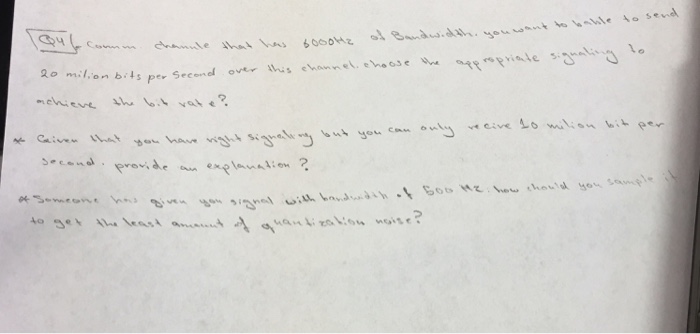 Q4 Comm channle that has 6000Hz of Bandwidth. you want to bahle to send
20 milion bits per Second over this channel. choose the appropriate signaling to
achieve the bit rate?
* Given that you have right signaling but you can only recive 10 milion bit per
Second. provide an explanation?
* Someone has given you signal with bandwidth of 500 Hz. how should you sample it
to get the least amount of quantization noise?